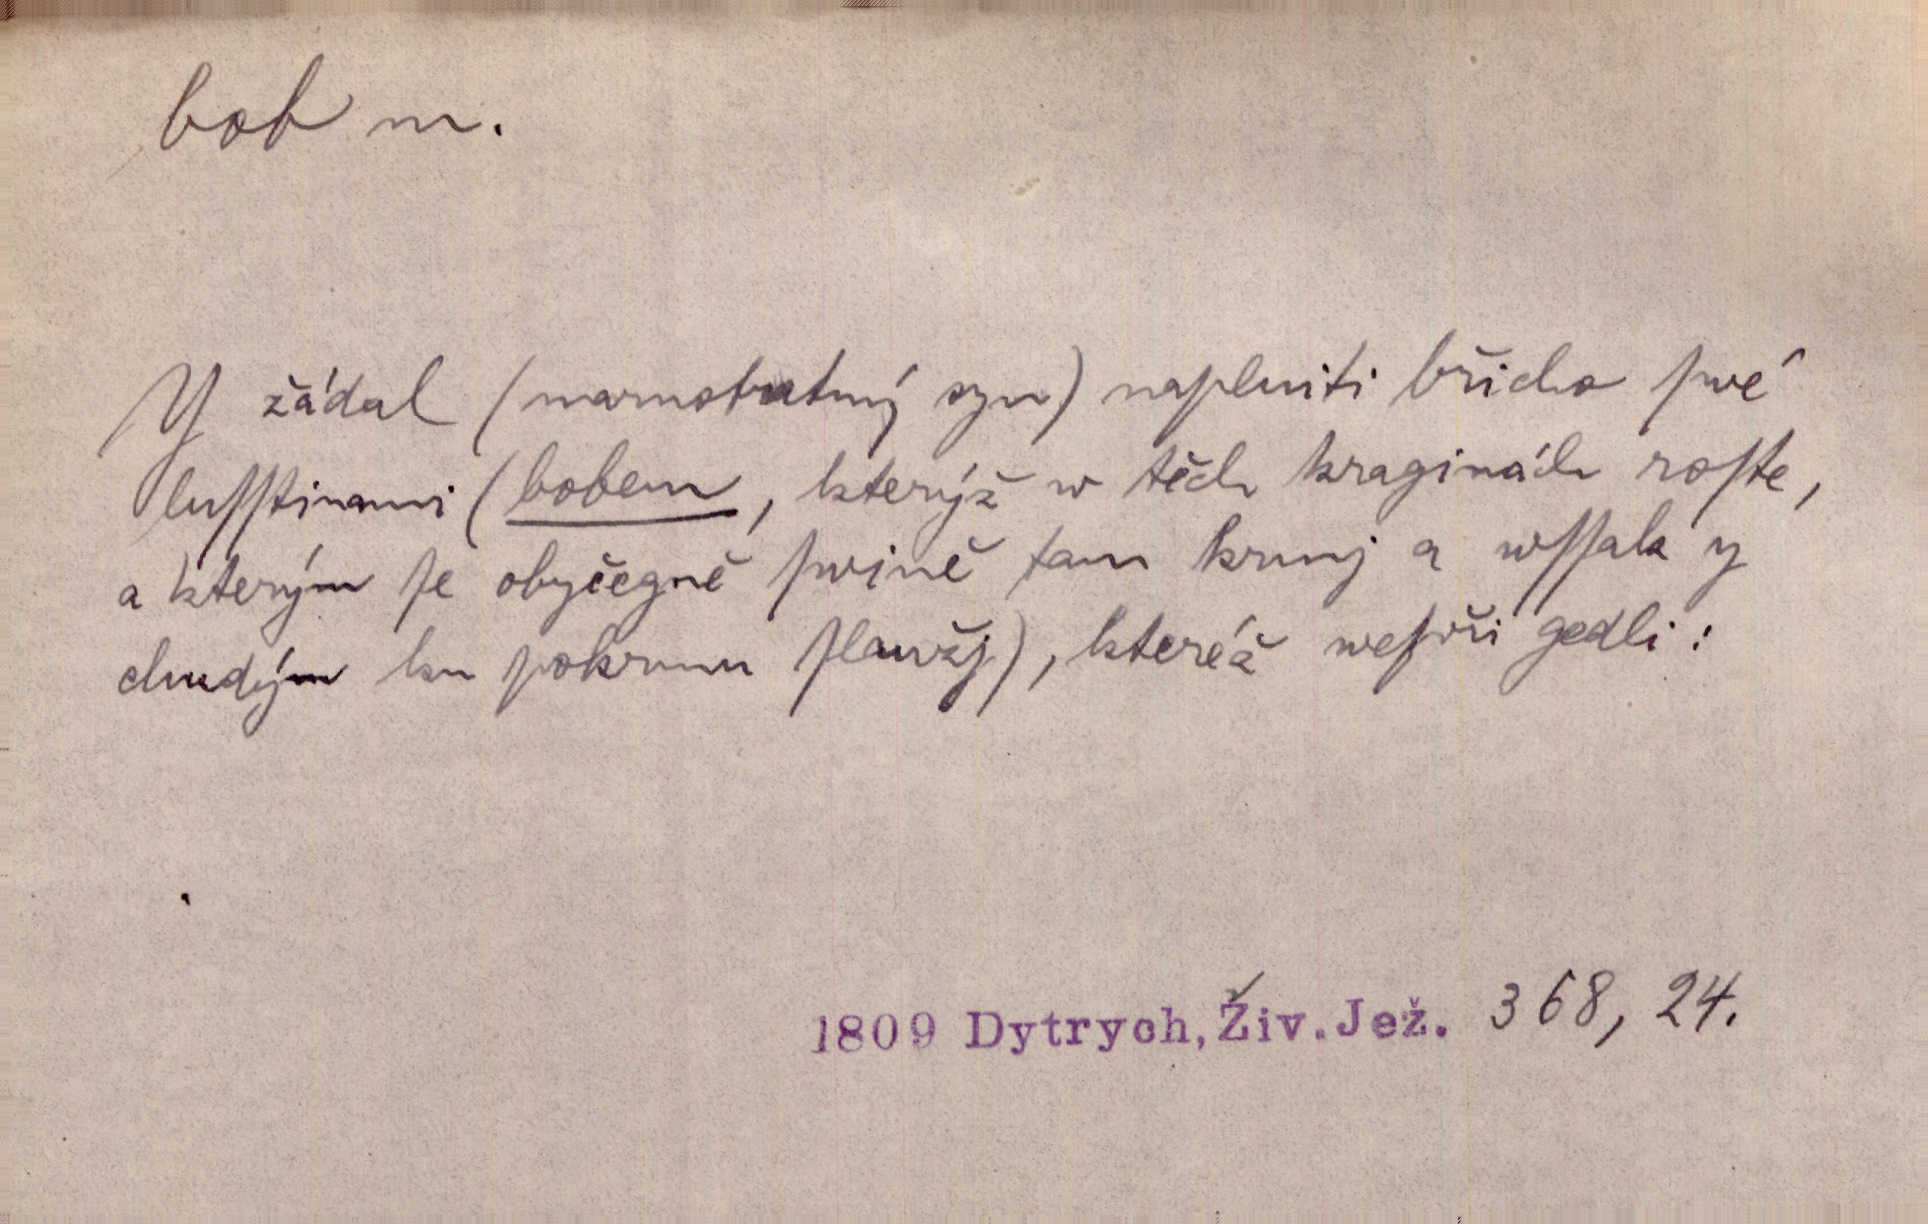 bob m.
Y žádal (marnotratný syn) naplniti břicho ſwé
luſſtinami (bobem, kterýž w těch kraginách roſte,
a kterým ſe obyčegně ſwině tam krmj a wſſak y
chudým ku pokrmu ſlaužj), kteréž wepři gedli:
1809 Dytrych, Živ. Jež. 368, 24.